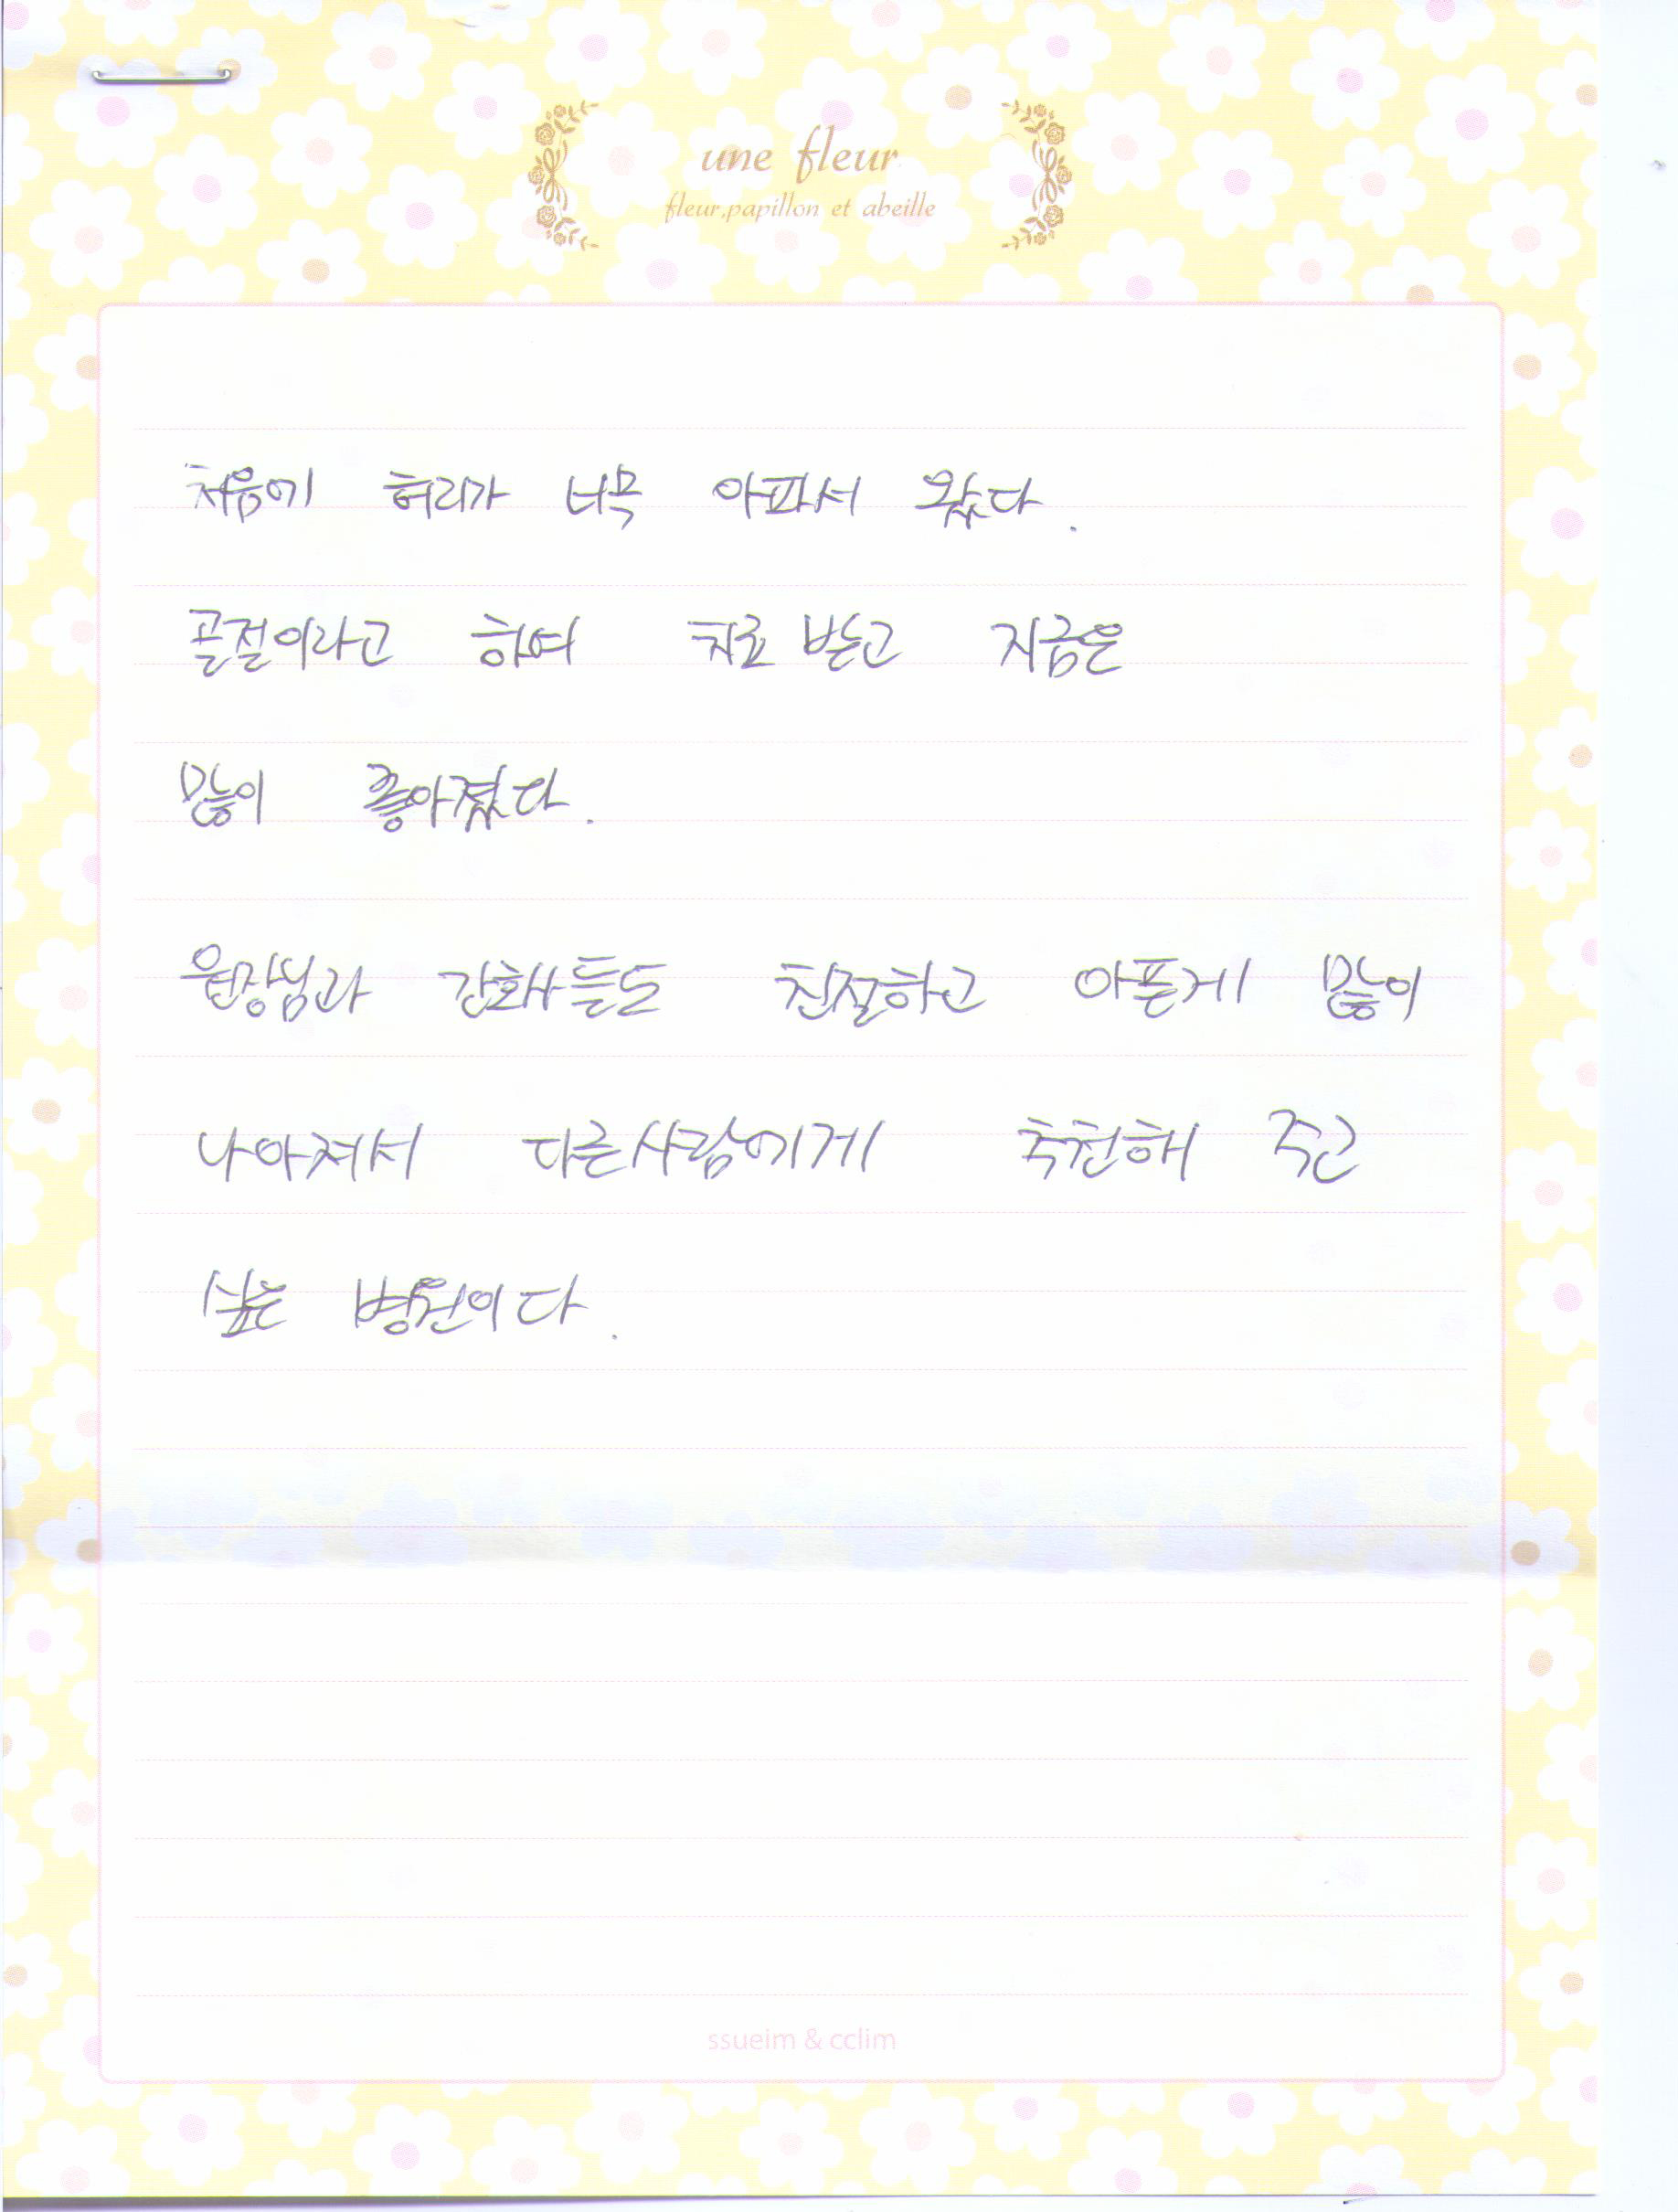 une fleur
fleur,papillon et abeille
처음에 허리가 너무 아파서 왔다.
골절이라고 하여 치료 받는고 지금은
많이 좋아졌다.
원장님과 간호사들도 친절하고 아픈게 많이
나아져서 다른사람에게 추천해 주고
싶은 병원이다.
ssueim & cclim